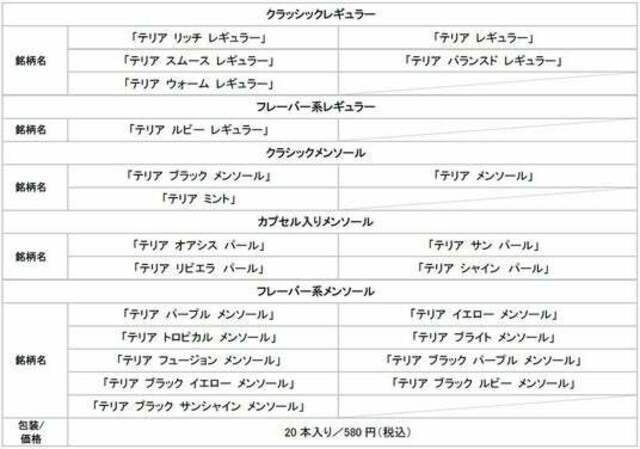 クラッシックレギュラー
銘柄名
「テリア リッチ レギュラー」 「テリア レギュラー」
「テリア スムース レギュラー」 「テリア バランスド レギュラー」
「テリア ウォーム レギュラー」
フレーバー系レギュラー
銘柄名 「テリア ルビー レギュラー」
クラシックメンソール
銘柄名
「テリア ブラック メンソール」 「テリア メンソール」
「テリア ミント」
カプセル入りメンソール
銘柄名
「テリア オアシス パール」 「テリア サン パール」
「テリア リビエラ パール」 「テリア シャイン パール」
フレーバー系メンソール
銘柄名
「テリア パープル メンソール」 「テリア イエロー メンソール」
「テリア トロピカル メンソール」 「テリア ブライト メンソール」
「テリア フュージョン メンソール」 「テリア ブラック パープル メンソール」
「テリア ブラック イエロー メンソール」 「テリア ブラック ルビー メンソール」
「テリア ブラック サンシャイン メンソール」
包装/
価格
20本入り／580円（税込）